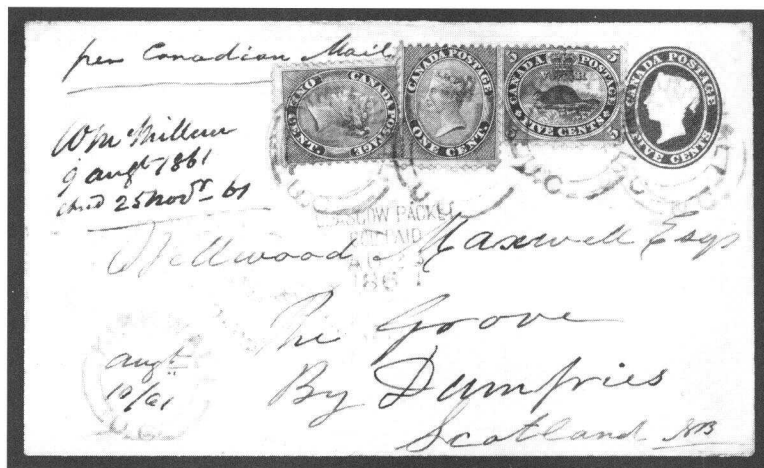 per Canadian Mail
CANADA POSTAGE
ONE CENT.
CANADA POSTAGE
ONE CENT.
5 5
CANADA POSTAGE
FIVE CENTS
5 5
CANADA POSTAGE
FIVE CENTS
Wm Millan
9 augt 1861
25 Novr 61
GLASGOW PACKET
PAID
1861
Wellwood Maxwell Esqr
The Grove
By Dumfries
Scotland NB
augt
10/61
U.C.